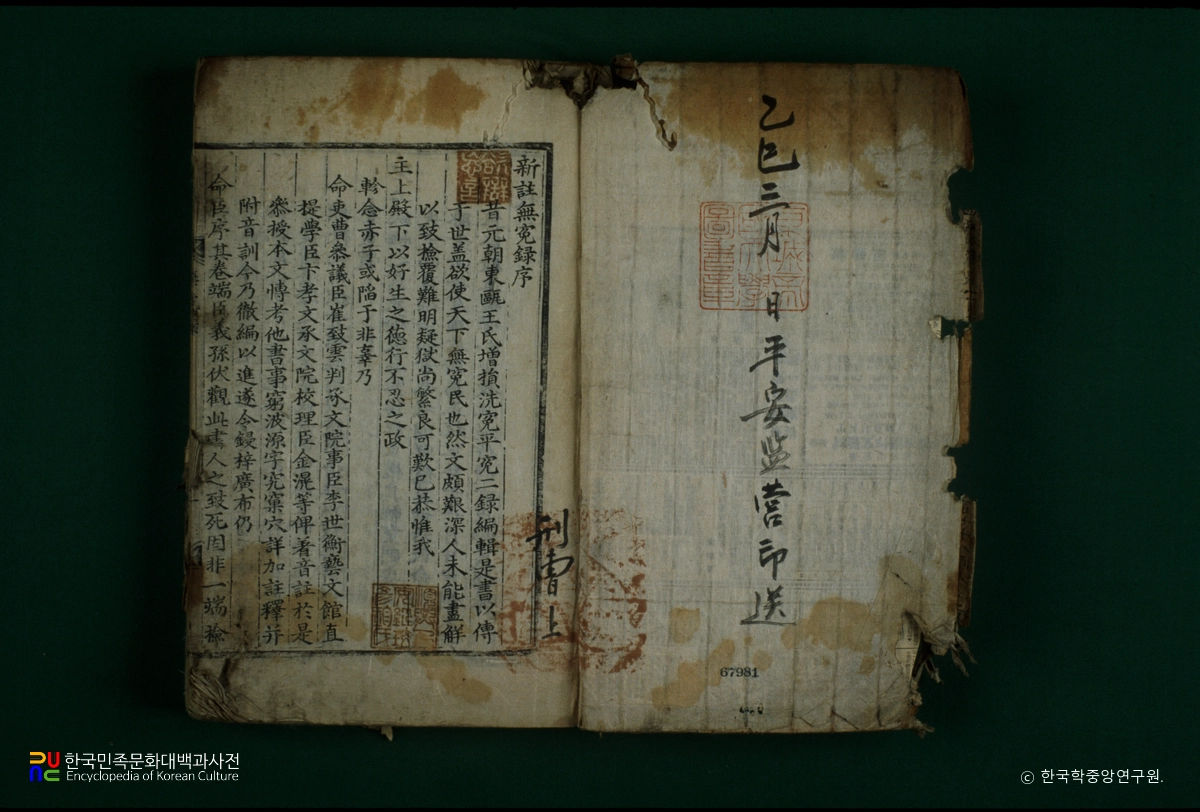 乙巳三月 日平安監營印送
67981
新註無冤録序
昔元朝東甌王氏增損洗冤平冤二録編輯是書以傳
于世盖欲使天下無冤民也然文頗艱深人未能盡解
以致檢覆難明疑獄尚繁良可歎已恭惟我
主上殿下以好生之德行不忍之政
軫念赤子或陷于非辜乃
命吏曹叅議臣崔致雲判承文院事臣李世衡藝文館直
提學臣卞孝文承文院校理臣金滉等俾著音註於是
叅授本文慱考他書事窮波源字究窠穴詳加註釋并
附音訓今乃徹編以進遂令鋟梓廣布仍
命臣序其卷端臣義孫伏觀此書人之致死因非一端檢
刑曹上
한국민족문화대백과사전
Encyclopedia of Korean Culture
© 한국학중앙연구원.